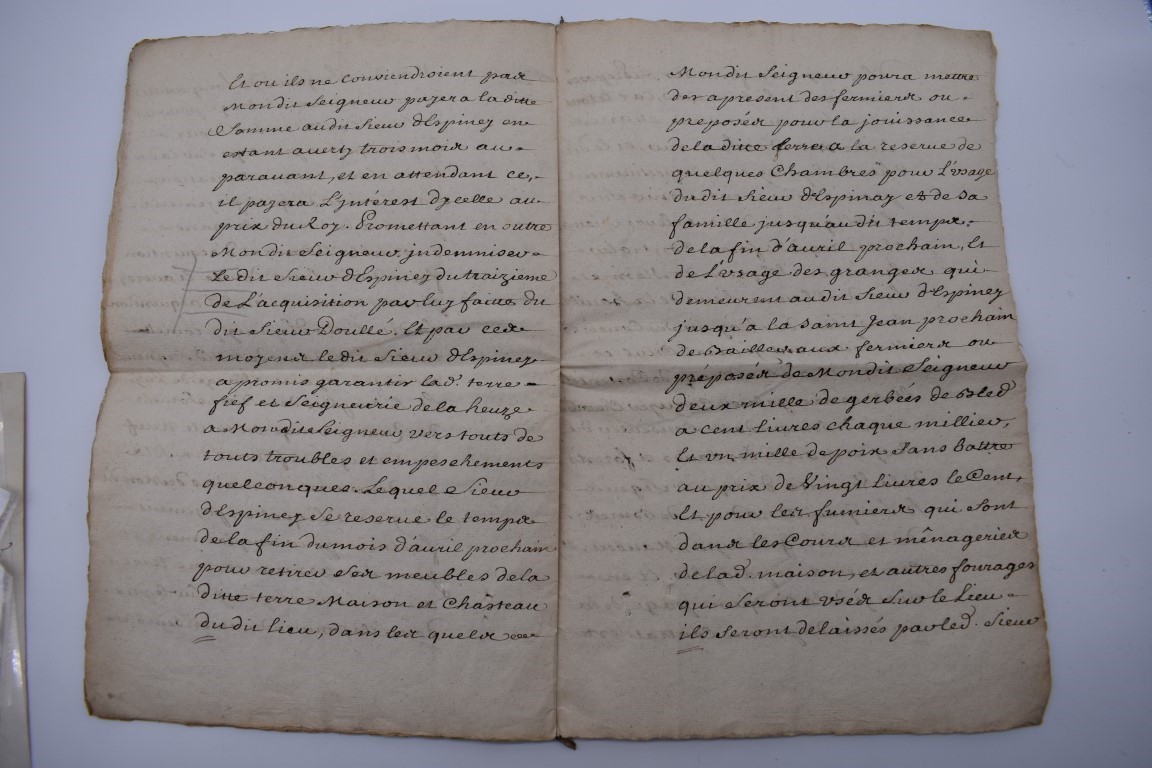 Et ou ils ne Conviendroient par
Mondit Seigneur payera la ditte
Somme audit Sieur d'Espiney en
estant averty trois mois au-
paravant, et en attendant ce,
il payera L'intérest d'ycelle au
prix du Roy. Promettant en outre
Mondit Seigneur, indemniser
Le dit Sieur d'Espiney du traizieme
de L'acquisition par luy faitte du
dit Sieur Doullé, Et par ces
moyens le dit Sieur d'Espiney
a promis garantir lad. terre
fief et Seigneurie de la heuze
a Mondit Seigneur vers touts de
touts troubles et empeschements
quelconques. Lequel Sieur
d'Espiney Se reserve le temps
de la fin du mois d'avril prochain
pour retirer Ses meubles de la
ditte terre Maison et Chasteau
du dit lieu, dans les quels
Mondit Seigneur poura mettre
des apresent des fermiers ou
preposés pour la jouissance
de la ditte terre a la reserve de
quelques Chambres pour L'usage
du dit Sieur d'Espinay et de Sa
famille jusqu'au dit temps
de la fin d'avril prochain, Et
de L'usage des granges qui
demeurent audit Sieur d'Espiney
jusqu'a la Saint Jean prochain
de Bailler aux fermiers ou
préposés de Mondit Seigneur
deux mille de gerbées de Bled
a cent livres chaque millier,
Et un mille de poix Sans battre
au prix de Vingt livres le Cent,
Et pour les fumiers qui Sont
dans les Cours et mênageries
de lad. maison, et autres fourages
qui Seront usés Sur le Lieu
ils Seront delaissés par led. Sieur